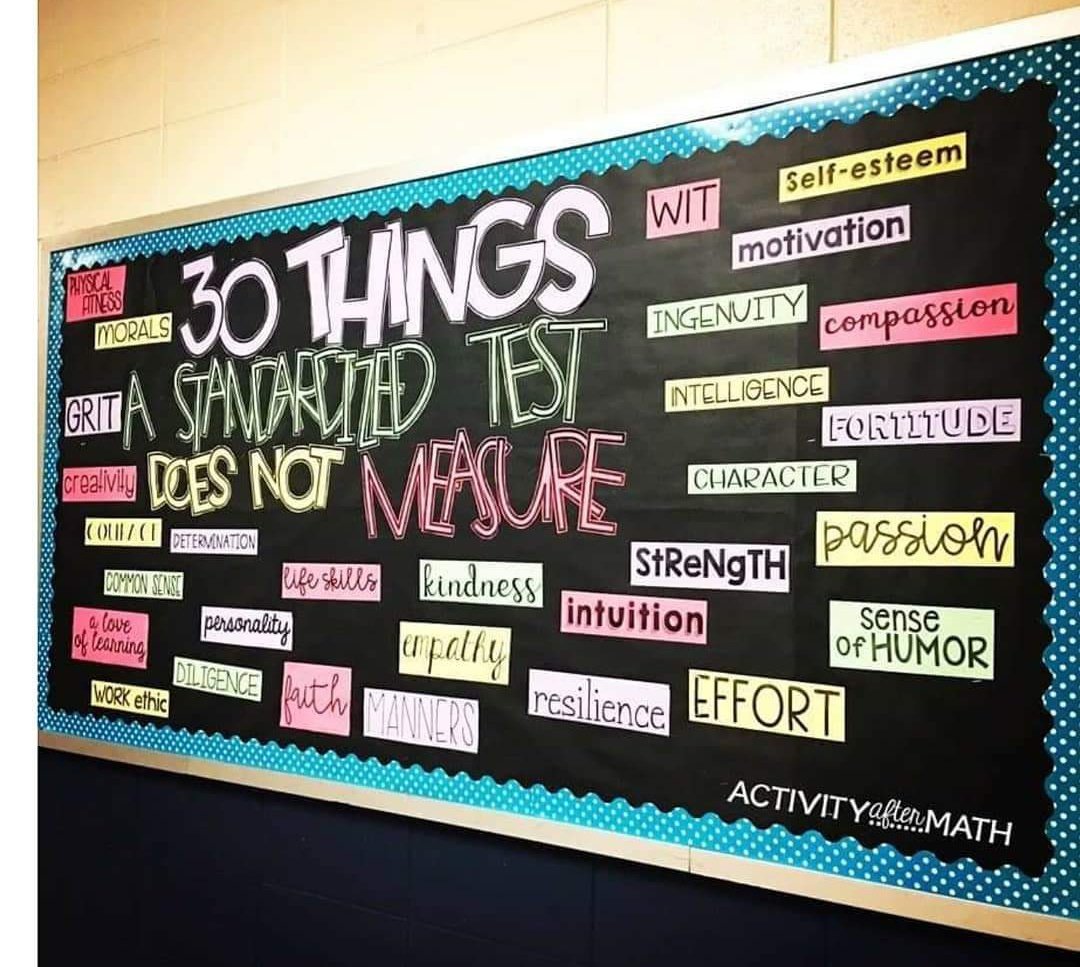 30 THINGS
A STANDARDIZED TEST
DOES NOT MEASURE
PHYSICAL
FITNESS
MORALS
GRIT
creativity
DETERMINATION
COMMON SENSE
life skills
kindness
a love
of learning
personality
empathy
DILIGENCE
WORK ethic
faith
MANNERS
WIT
Self-esteem
motivation
INGENUITY
compassion
INTELLIGENCE
FORTITUDE
CHARACTER
passion
StReNgTH
intuition
sense
of HUMOR
resilience
EFFORT
ACTIVITY after MATH